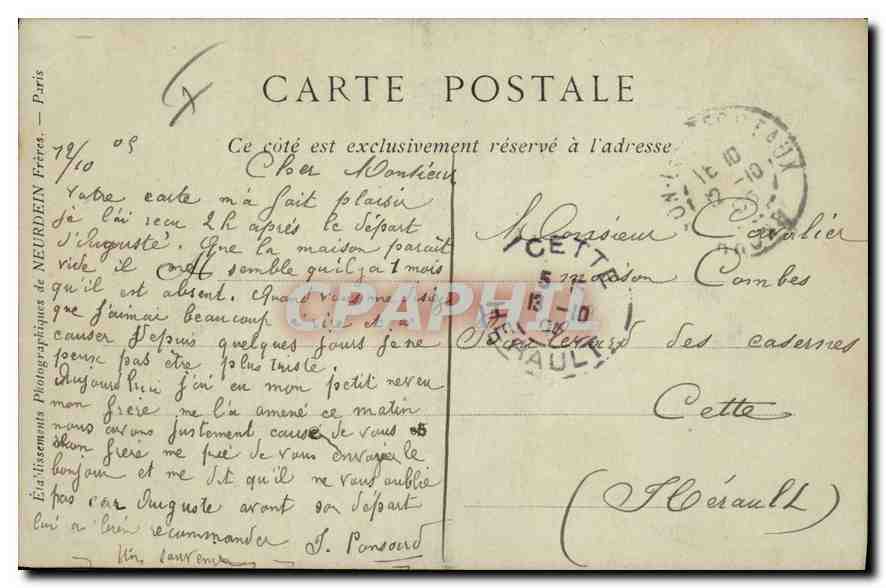 CARTE POSTALE
Ce côté est exclusivement réservé à l'adresse
Établissements Photographiques de NEURDEIN Frères. — Paris
12/10 05
Cher Monsieur
Votre carte m'a fait plaisir
je l'ai reçu 2h après le départ
d'Auguste. Que la maison paraît
vide il me semble qu'il y a 1 mois
qu'il est absent. Quand vous me disiez
que j'aimai beaucoup rire et à
causer depuis quelques jours je ne
peux pas être plus triste.
Aujourd'hui j'ai eu mon petit neveu
mon frère me l'a amené ce matin
nous avons justement causé de vous
mon frère me prie de vous envoyer le
bonjour et me dit qu'il ne vous oublie
pas car Auguste avant son départ
lui a bien recommander J. Ponsard
souvenir
Monsieur Cavalier
maison Combes
Boulevard des casernes
Cette
(Hérault)
CETTE
5
13 -10
05
HERAULT
BORDEAUX
CPAPHIL